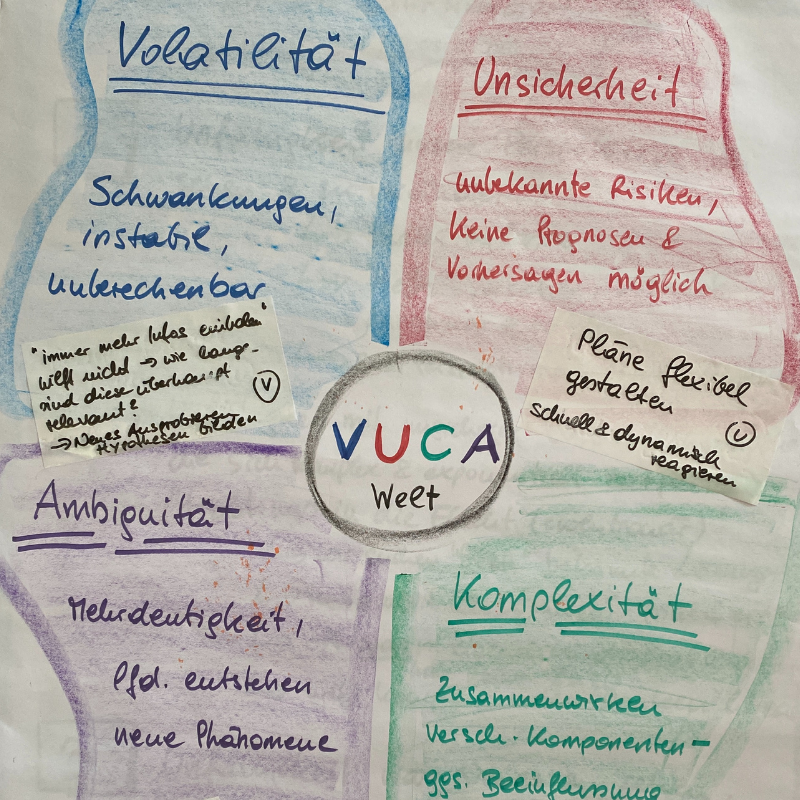 Volatilität
Schwankungen,
instabil,
unberechenbar
"immer mehr Infos einholen"
hilft nicht → wie lange
sind diese überhaupt
relevant?
→ Neues Ausprobieren
Hypothesen bilden
V
Unsicherheit
unbekannte Risiken,
Keine Prognosen &
Vorhersagen möglich
Pläne flexibel
gestalten
schnell & dynamisch
reagieren
U
VUCA
Welt
Ambiguität
Mehrdeutigkeit,
lfd. entstehen
neue Phänomene
Komplexität
Zusammenwirken
versch. Komponenten -
ggs. Beeinflussung